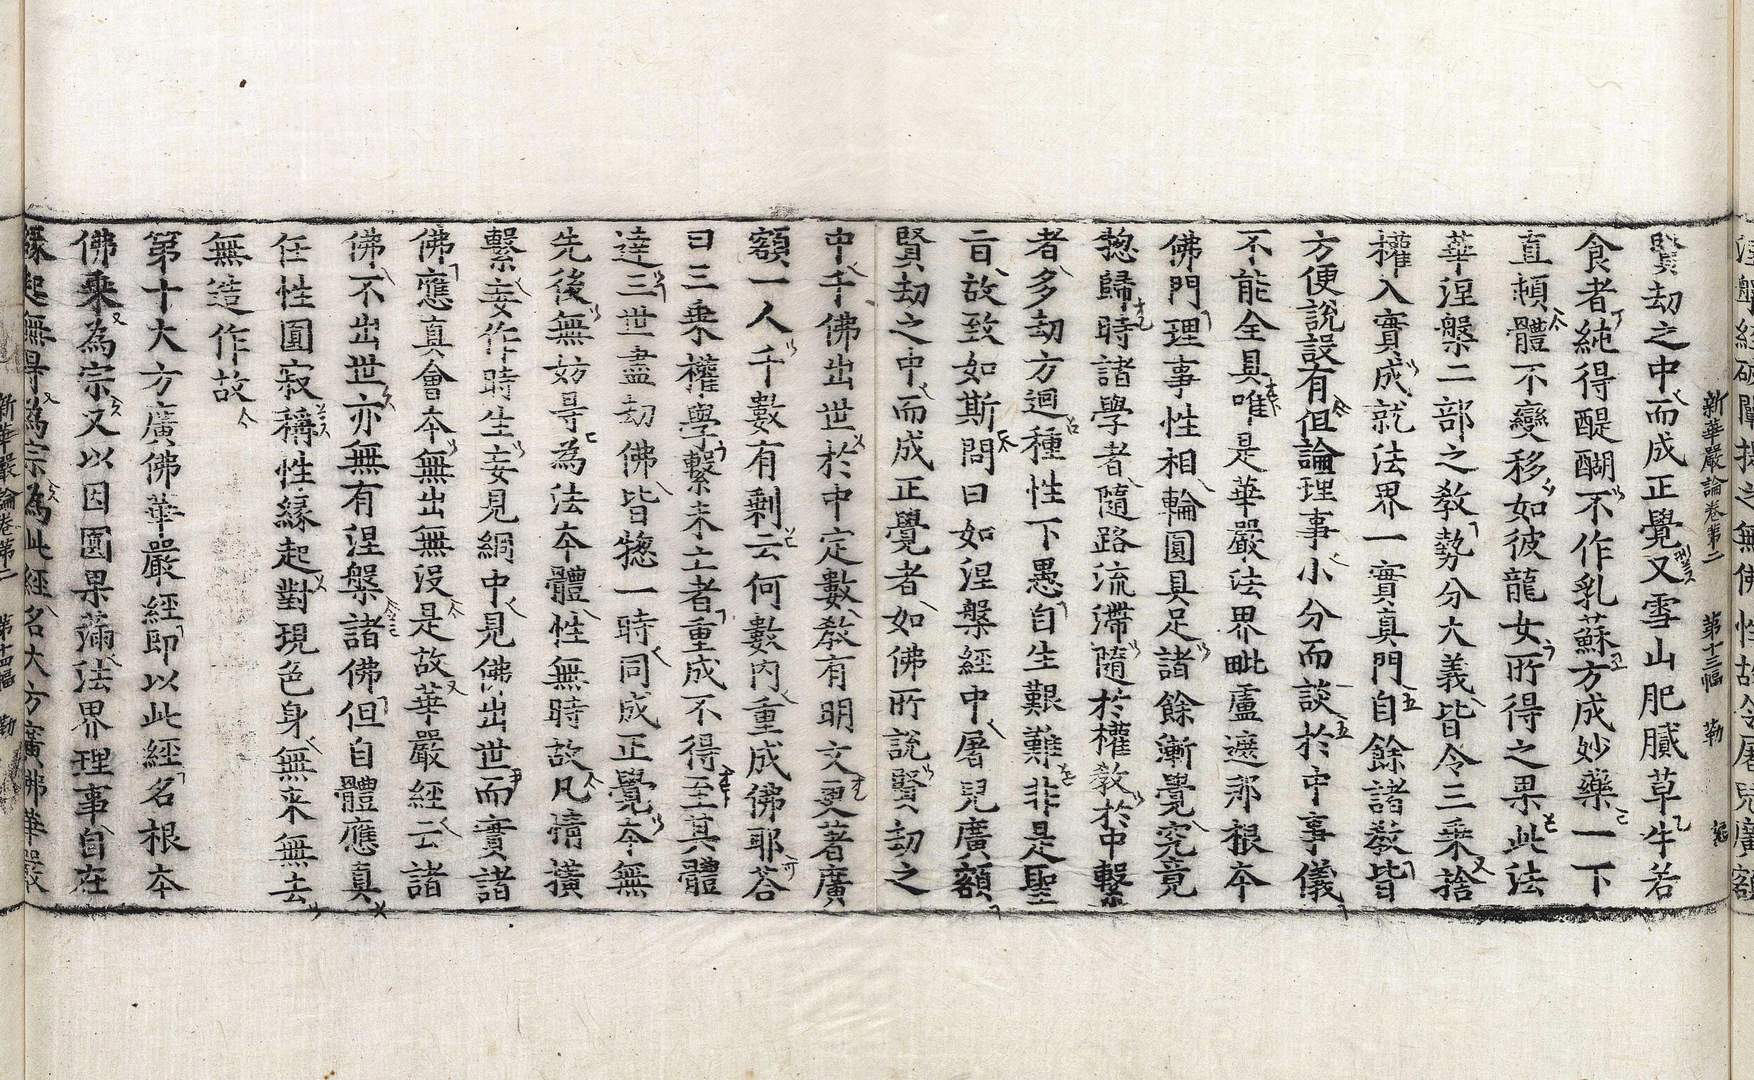 涅槃經破闡提之無佛性故令屠兒廣額
新華嚴論卷第二　第十三幅　勒
賢劫之中而成正覺又雪山肥膩草牛若
食者純得醍醐不作乳蘇方成妙藥一下
直頓體不變移如彼龍女所得之果此法
華涅槃二部之教勢分大義皆令三乘捨
權入實成就法界一實真門自餘諸教皆
方便說設有但論理事小分而談於中事儀
不能全具唯是華嚴法界毗盧遮那根夲
佛門理事性相輪圓具足諸餘漸覺究竟
揔歸時諸學者隨路流滯隨於權教於中繫
者多劫方迴種性下愚自生艱難非是聖
旨故致如斯問曰如涅槃經中屠兒廣額
賢劫之中而成正覺者如佛所說賢劫之
中千佛出世於中定數教有明文更著廣
額一人千數有剩云何數內重成佛耶荅
曰三乗權學繫未亡者重成不得至其體
達三世盡劫佛皆揔一時同成正覺夲無
先後無妨㝵為法夲體性無時故凡情橫
繫妄作時生妄見網中見佛出世而實諸
佛應真會夲無出無沒是故華嚴經云諸
佛不出世亦無有涅槃諸佛但自體應真
任性圓寂稱性緣起對現色身無来無去
無造作故
第十大方廣佛華嚴經即以此經名根夲
佛乗為宗又以因圓果滿法界理事自在
緣起無㝵為宗為此經名大方廣佛華嚴
新華嚴論卷第二　第十四幅　勒